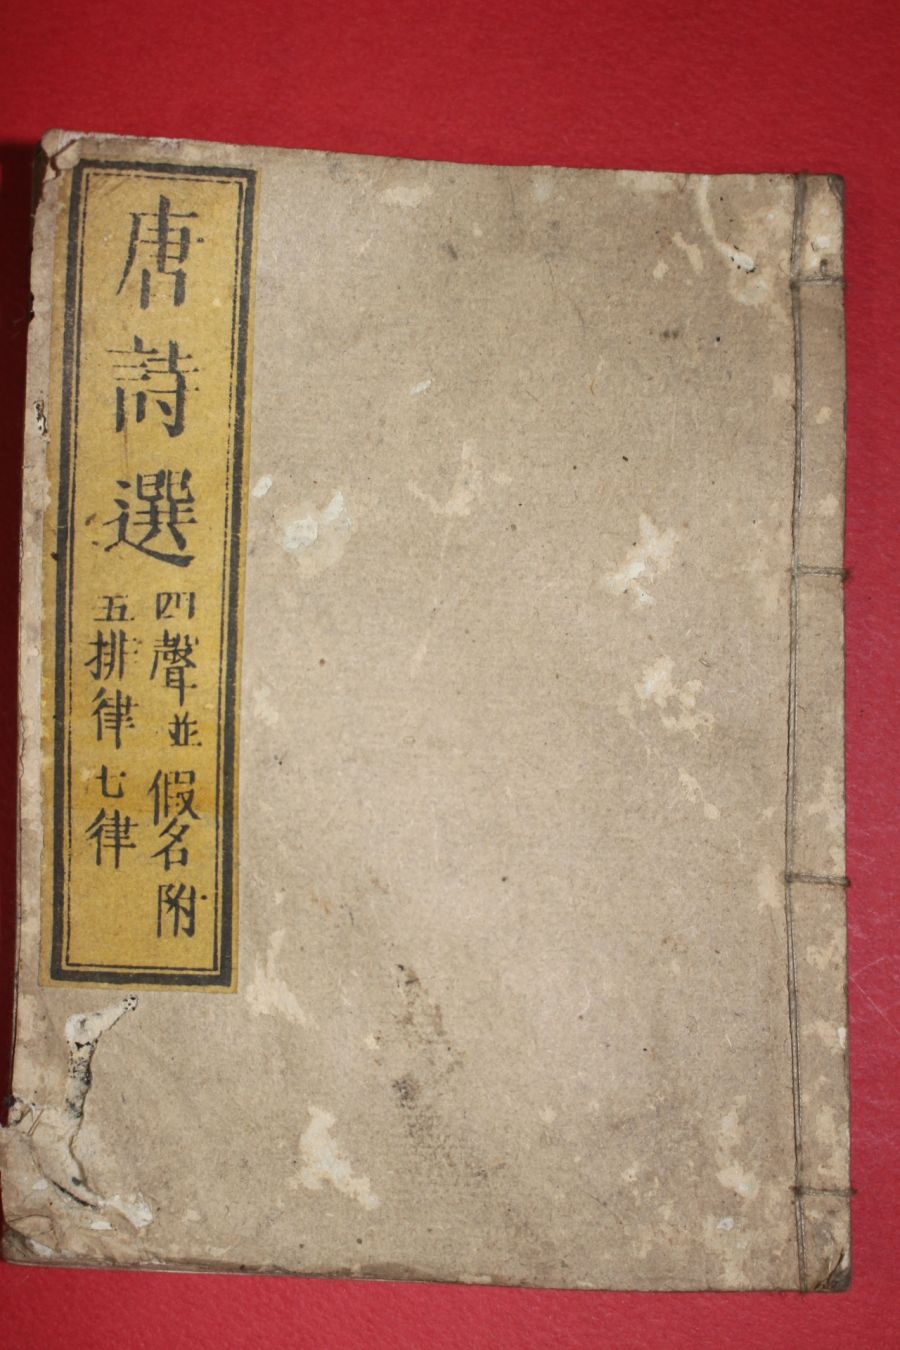 唐詩選
四聲並假名附
五排律七律